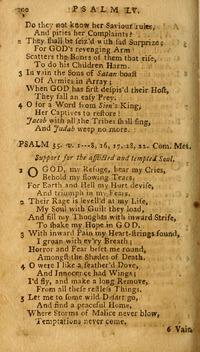 200 PSALM LV.
Do they not know her Saviour rules,
And pities her Complaints?
2 They shall be seiz'd with sad Surprize;
For GOD's revenging Arm
Scatters the Bones of them that rise,
To do his Children Harm.
3 In vain the Sons of Satan boast
Of Armies in Array;
When GOD has first despis'd their Host,
They fall an easy Prey.
4 O for a Word from Sion's King,
Her Captives to restore!
Jacob with all the Tribes shall sing,
And Judah weep no more.
PSALM 55. v. 1---8, 16, 17, 18, 22. Com. Met.
Support for the afflicted and tempted Soul.
1 O GOD, my Refuge, hear my Cries,
Behold my flowing Tears,
For Earth and Hell my Hurt devise,
And triumph in my Fears.
2 Their Rage is levell'd at my Life,
My Soul with Guilt they load,
And fill my Thoughts with inward Strife,
To shake my Hope in GOD.
3 With inward Pain my Heart-strings sound,
I groan with ev'ry Breath;
Horror and Fear beset me round,
Amongst the Shades of Death.
4 O were I like a feather'd Dove,
And Innocence had Wings;
I'd fly, and make a long Remove,
From all these restless Things.
5 Let me to some wild Desart go,
And find a peaceful Home,
Where Storms of Malice never blow,
Temptations never come.
6 Vain